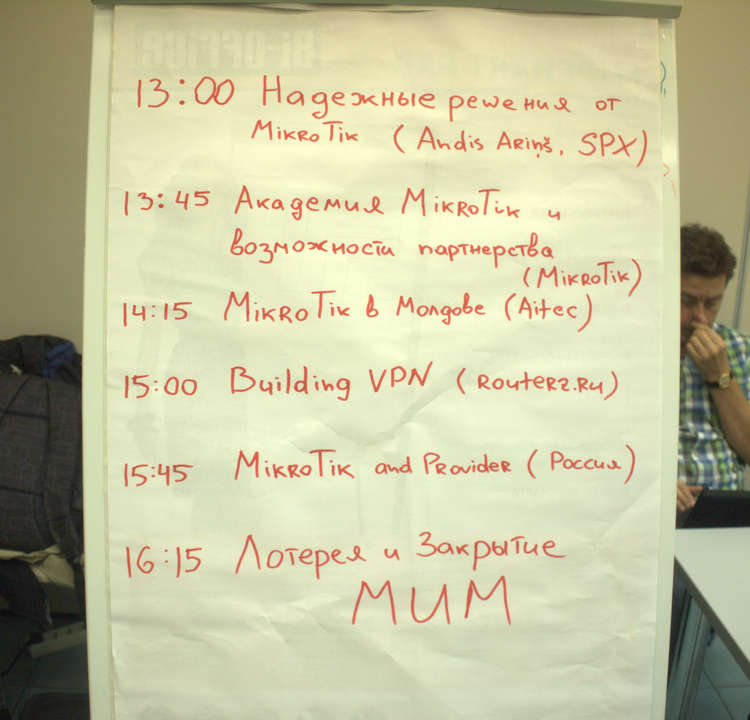 Bi-OFFICE
13:00 Надежные решения от
MikroTik (Andis Ariņš, SPX)
13:45 Академия MikroTik и
возможности партнерства
(MikroTik)
14:15 MikroTik в Молдове (Aitec)
15:00 Building VPN (Routerz.Ru)
15:45 MikroTik and Provider (Россия)
16:15 Лотерея и Закрытие
MUM